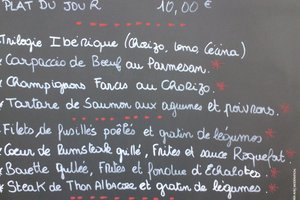 PLAT DU JOUR 10,00 €
Trilogie Ibérique (Chorizo, Lomo, Cécina)
* Carpaccio de Bœuf au Parmesan. *
* Champignons Farcis au Chorizo. *
* Tartare de Saumon aux agrumes et poivrons. *
* Filets de fusillés poêlés et gratin de légumes *
* Cœur de Rumsteak grillé, Frites et sauce Roquefort. *
* Bavette grillée, Frites et fondue d'Echalotes. *
* Steak de Thon Albacore et gratin de légumes. *